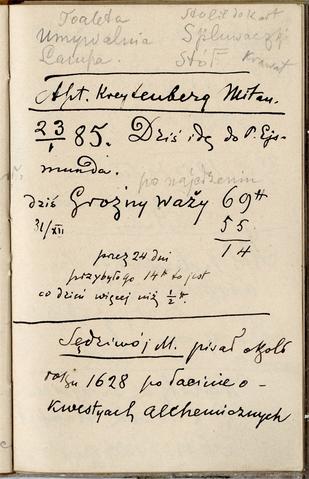 Toaleta
Umywalnia
Lampa.
Stolik do kart
Spluwaczki
Stół Krawat
Apt. Kreytenberg Mitau.
23/1 85. Dziś idę do P. Ejs-
munda.
po najedzeniu
dziś Groźny waży 69 ℔
31/XII 55
14
przez 24 dni
przybyło go 14 ℔ to jest
co dzień więcej niż ½ ℔.
Sędziwój M. pisał około
roku 1628 po łacinie o
kwestyach alchemicznych